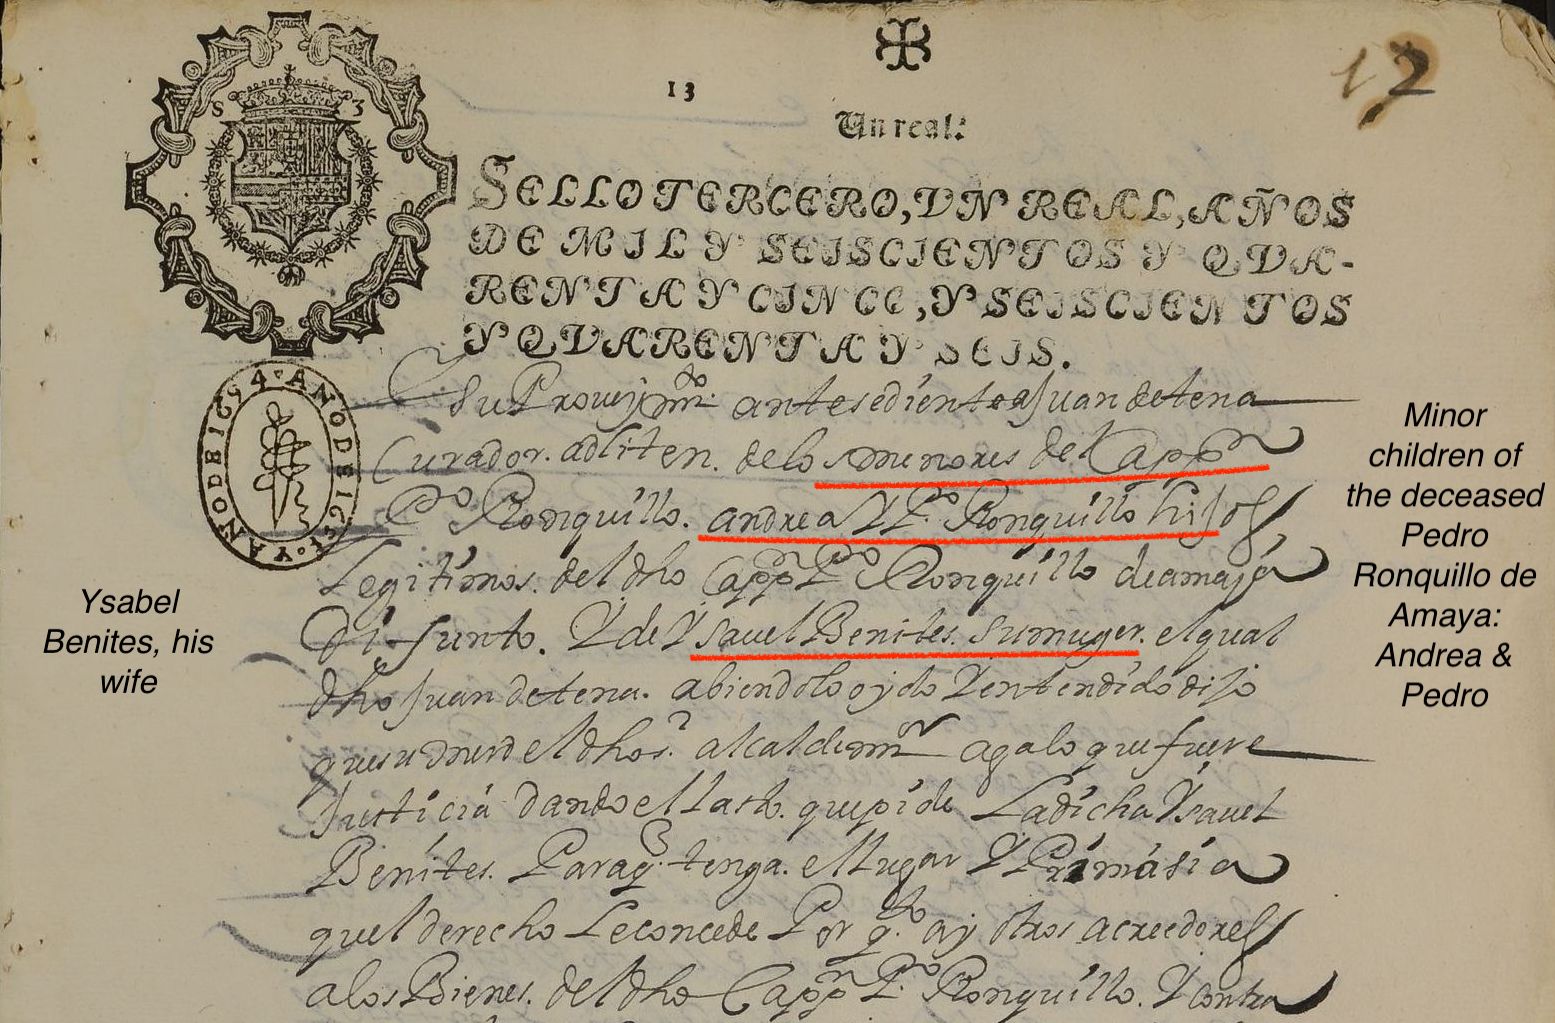 17
13
Un real.
S 3
SELLO TERCERO, VN REAL, AÑOS
DE MIL Y SEISCIENTOS Y QVA-
RENTA Y CINCO, Y SEISCIENTOS
Y QVARENTA Y SEIS.
Su Proueymto antesediente a Juan de tena
Curador. adliten. de los menores del Cappn
Po Ronquillo. andrea Y Po Ronquillo hijos
Legitimos. del dho Cappn Po Ronquillo de amaya
Difunto. Y de Ysauel Benites. su muger. el qual
dho Juan de tena. abiendolo oydo Y entendido dijo
que su md el dho sr alcalde mr aga lo que fuere
Justicia dando el lasto. que pide La dicha Ysauel
Benites. Para q. tenga. el lugar Y Primasia
que el derecho Le concede Por qto ay otros acreedores
a los Bienes. del dho Cappn Po Ronquillo. Y contra
Ysabel
Benites, his
wife
Minor
children of
the deceased
Pedro
Ronquillo de
Amaya:
Andrea &
Pedro